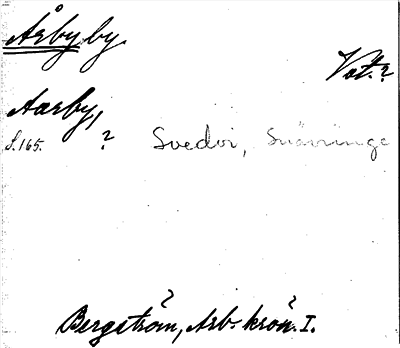 Årby by
Vst.?
Aarby,
S. 165. ? Svedvi, Snävringe
Bergström, Arb. krön. I.